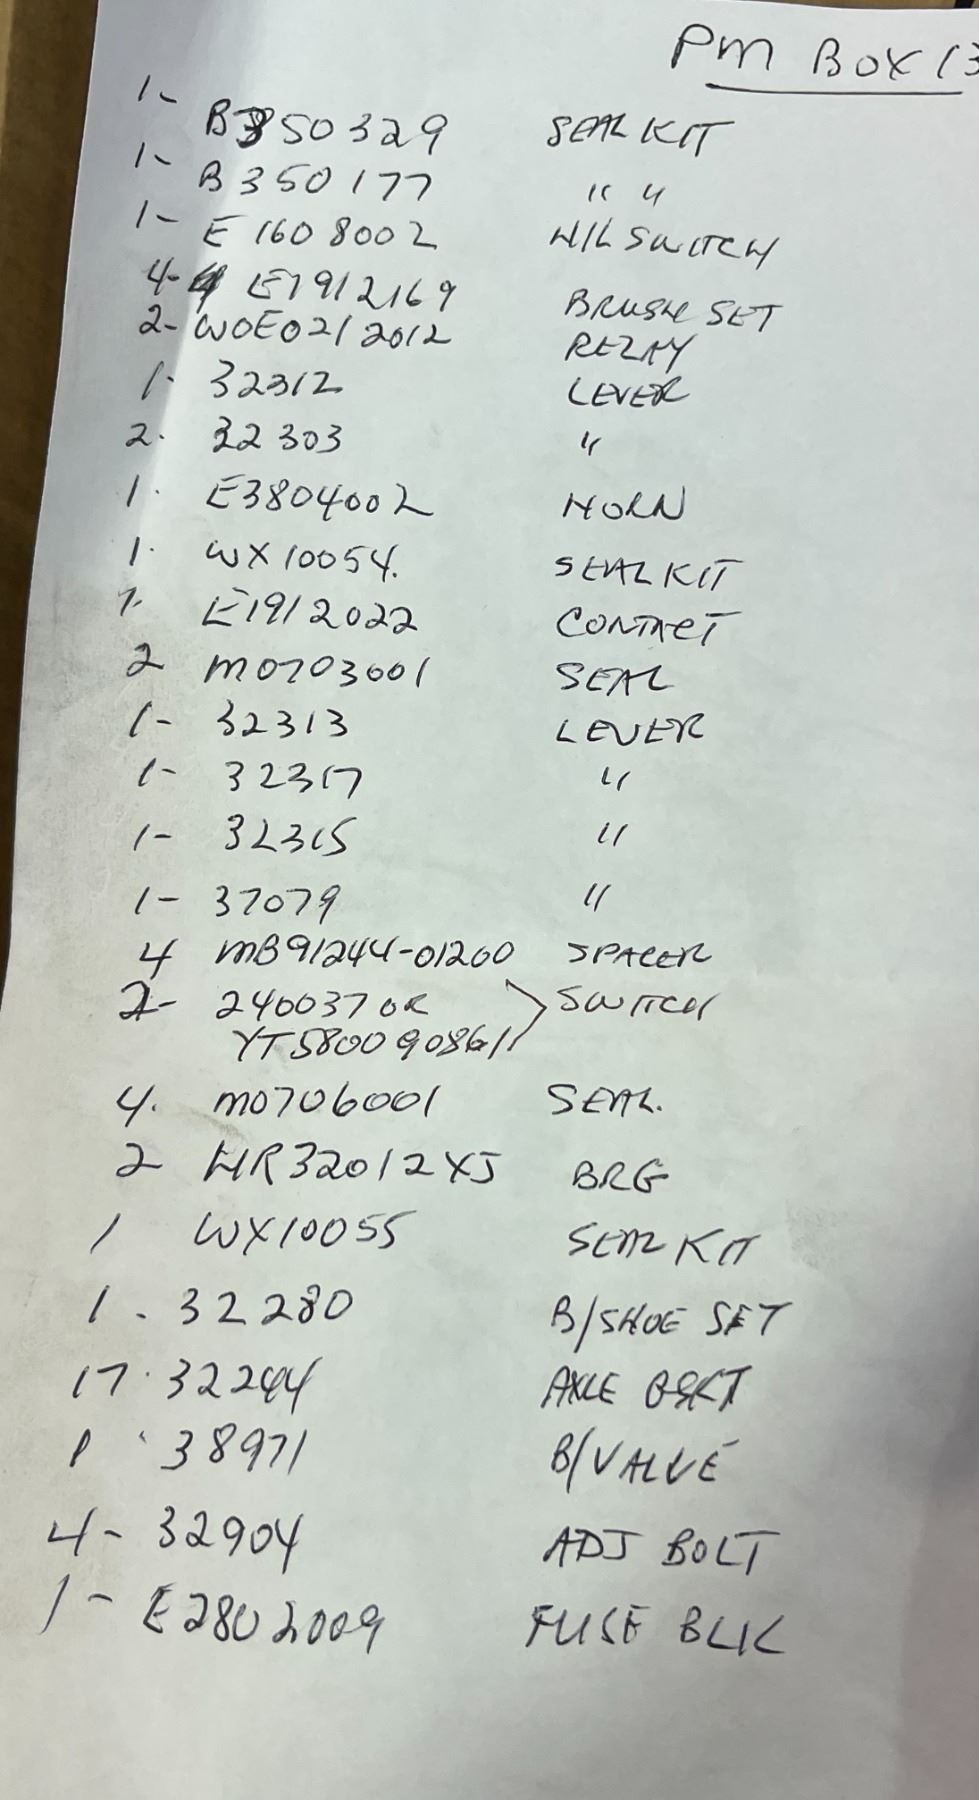 PM BOX 13
1- B350329 SEAL KIT
1- B350177 " "
1- E1608002 H/L SWITCH
4- E1912169 BRUSH SET
2- WOE0212012 RELAY
1- 32312 LEVER
2. 32303 "
1. E3804002 HORN
1. WX10054. SEAL KIT
1- E1912022 CONTACT
2 M0703001 SEAL
1- 32313 LEVER
1- 32317 "
1- 32315 "
1- 37079 "
4 MB91244-01200 SPACER
2- 2400370R SWITCH
YT580090861
4. M0706001 SEAL.
2 HR32012XJ BRG
1 WX10055 SEAL KIT
1. 32280 B/SHOE SET
17. 32244 AXLE BRKT
1 38971 B/VALVE
4- 32904 ADJ BOLT
1- E2802009 FUSE BLK